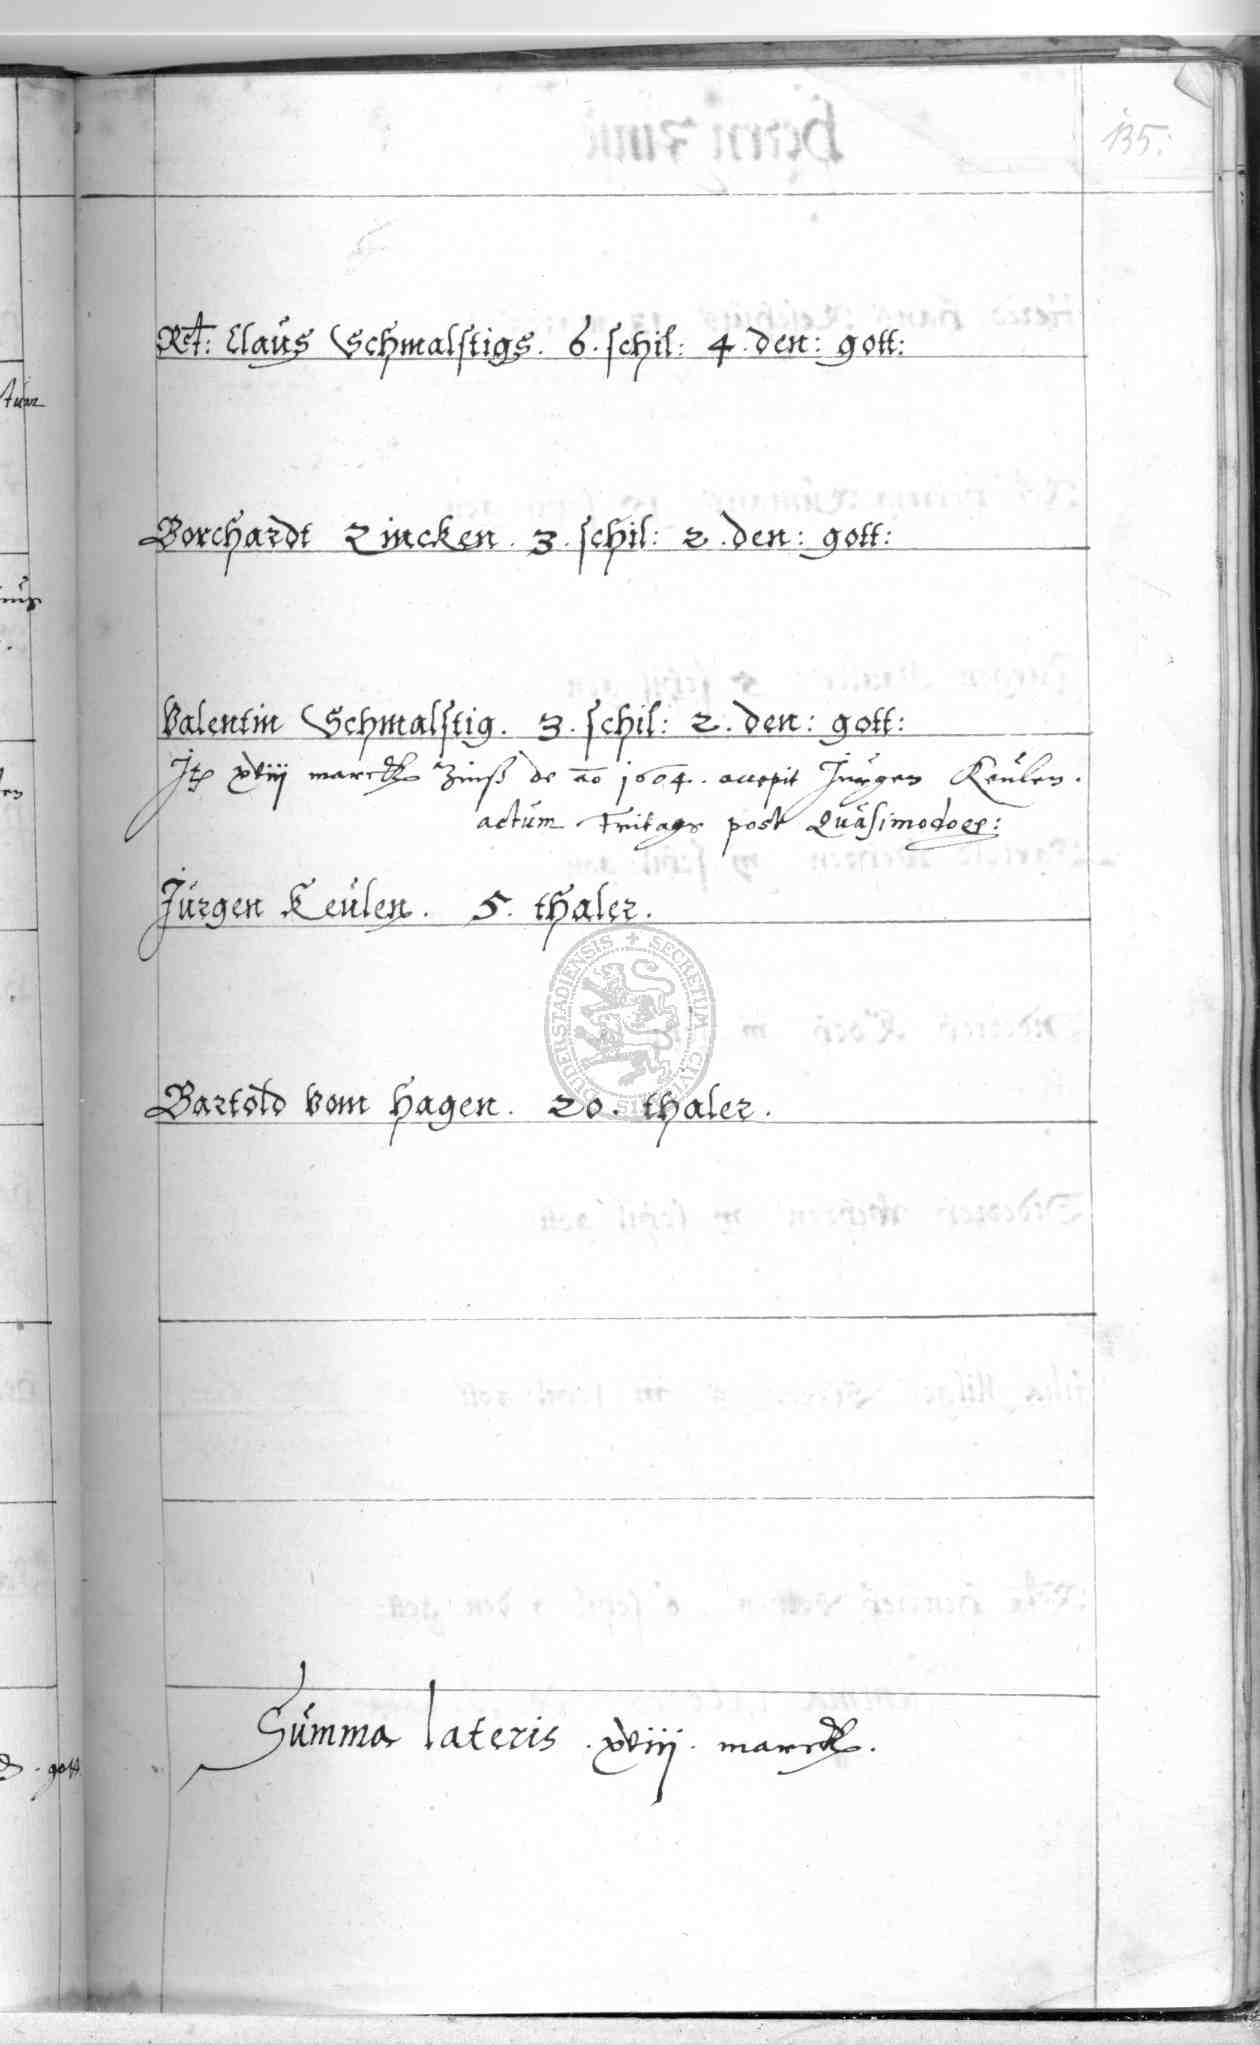 135.
Rct: Claus Schmalstigs. 6. schil: 4. den: gott:
Borchardt Zincken. 3. schil: 2. den: gott:
Valentin Schmalstig. 3. schil: 2. den: gott:
xviij marck Zinß de ao 1604. accepit Jürgen Keulen.
actum Fritags post Quasimodog:
Jürgen Keulen. 5. thaler.
Bartold vom Hagen. 20. thaler.
Summa lateris. xviij. marck.
gott
DUDERSTADIENSIS + SECRETUM CIVI